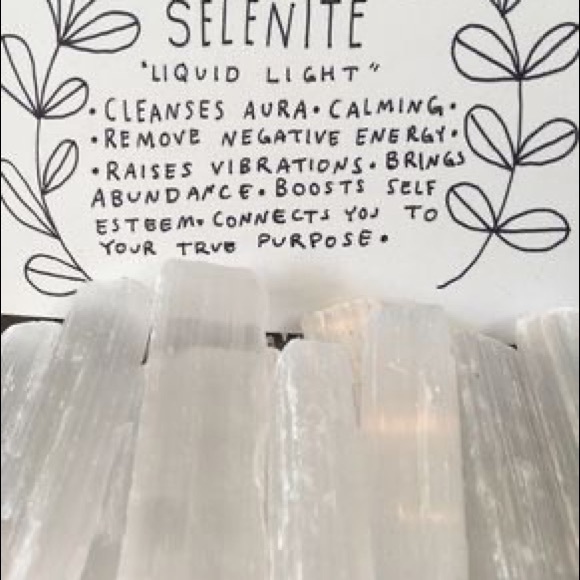 SELENITE
"LIQUID LIGHT"
• CLEANSES AURA • CALMING •
• REMOVE NEGATIVE ENERGY •
• RAISES VIBRATIONS • BRINGS
ABUNDANCE • BOOSTS SELF
ESTEEM • CONNECTS YOU TO
YOUR TRUE PURPOSE •